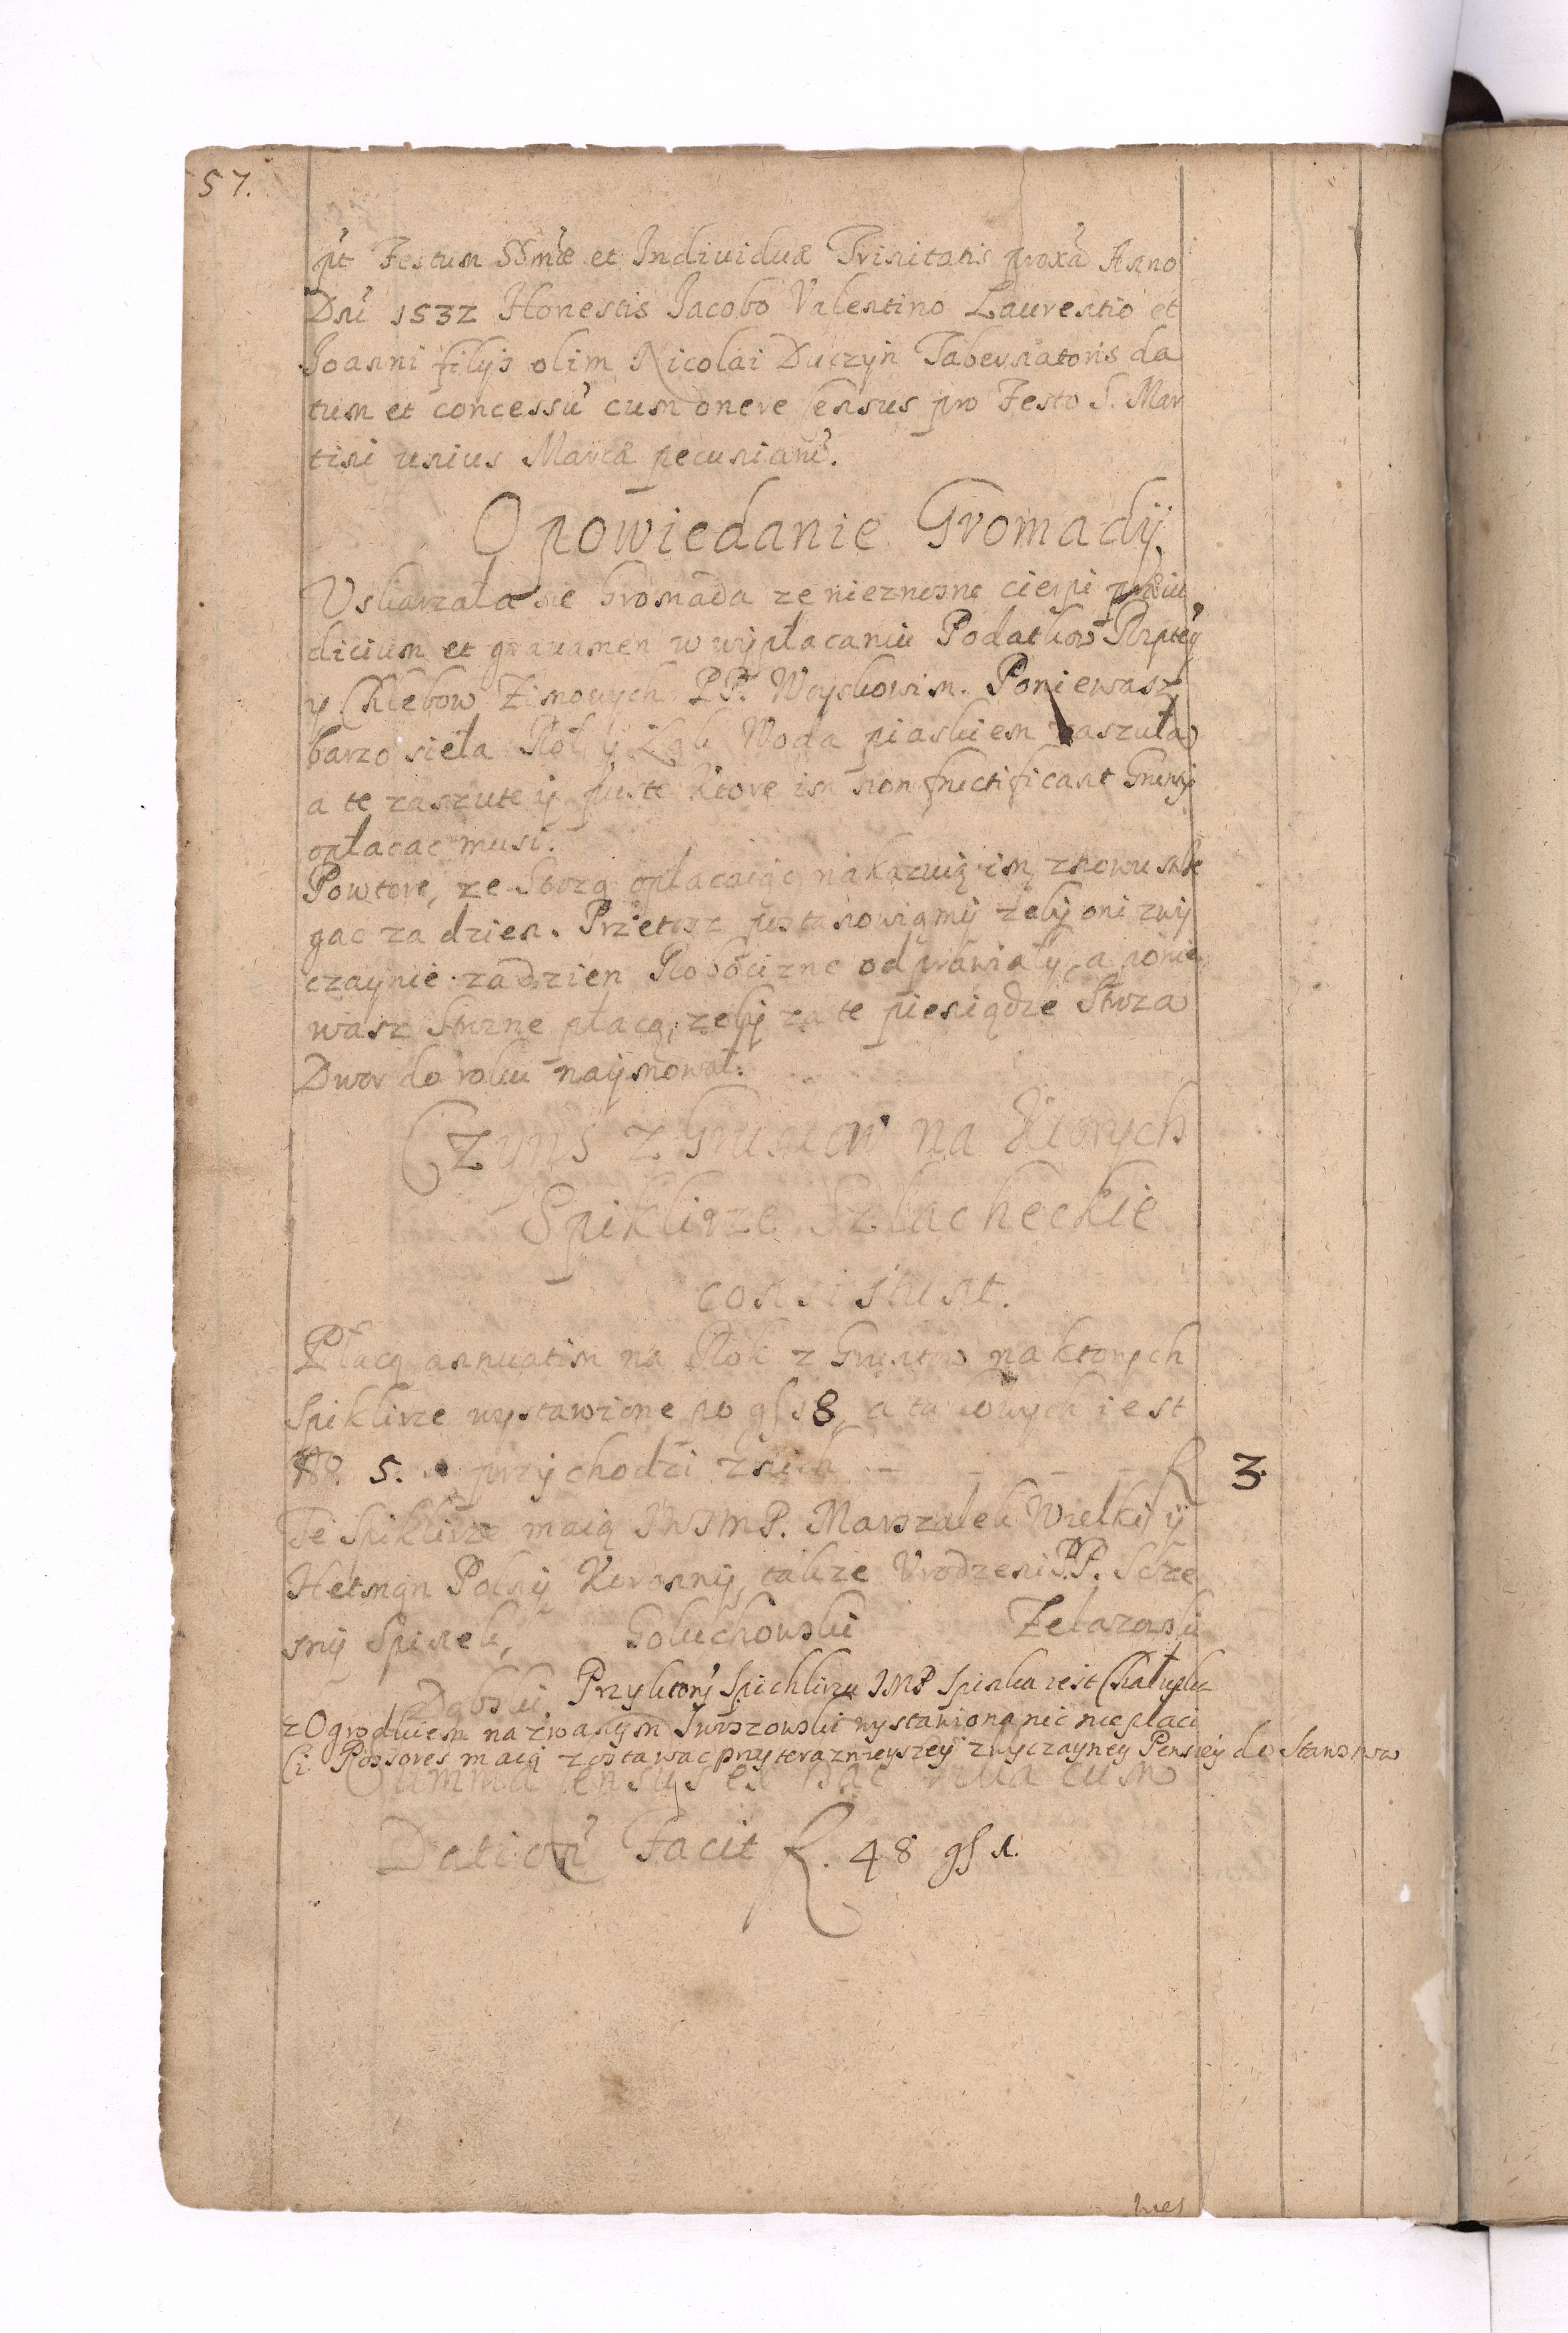 57.
pt Festum SSmæ et Individuæ Trinitatis proxa Anno
Dni 1532 Honestis Jacobo Valentino Laurentio et
Joanni filijs olim Nicolai Duczyn Tabernatoris da
tum et concessu cum onere census pro Festo S. Mar
tini unius Marcæ pecuniarū.
Opowiedanie Gromadÿ.
Uskarzała sie Gromada ze nieznosne cierpi præiu
dicium et gravamen w wypłacaniu Podatkow Rptey
y Chlebow Zimowych PP. Woyskowim. Poniewasz
barzo siela Rol y Łąk Woda piaskiem zaszuła
a te zaszute ÿ puste Ktore im non fructificant Grunty
opłacac musi.
Powtore, ze Strozą opłacaiąc, nakazuią im znowu strze
gac za dzien. Przetosz postanowiamÿ zebÿ oni zwÿ
czaynie za dzien Robocizne odprawiali, a ponie
wasz Strozne płacą, zebÿ za te pieniądze Stroza
Dwor do roku naÿmował.
Czyns z Gruntow na Ktorych
Spiklirze Szlacheckie
consistunt.
Płacą annuatim na Rok z Gruntow na ktorych
Spiklirze wystawione po gs 18 a takowych iest
No. 5. przychodzi z nich - - - - f 3.
Te Spiklirze maią JWJMP. Marszałek Wielki ÿ
Hetman Polnÿ Koronnÿ, takze Urodzeni PP. Szcze
snÿ Spinek, Goluchowski Zelazowski
Dąbski. Przy ktorÿ Spichlirzu JMP Spinka iest Chałupka
z Ogrodkiem nazwanym wystawiona nic nie płaci
Ci Possores maią zostawac przy teraznieyszeÿ zwyczayneÿ Pensieÿ do Starostwa
Summa Census ex hac Villa cum
Dationi Facit f. 48 gs 1.